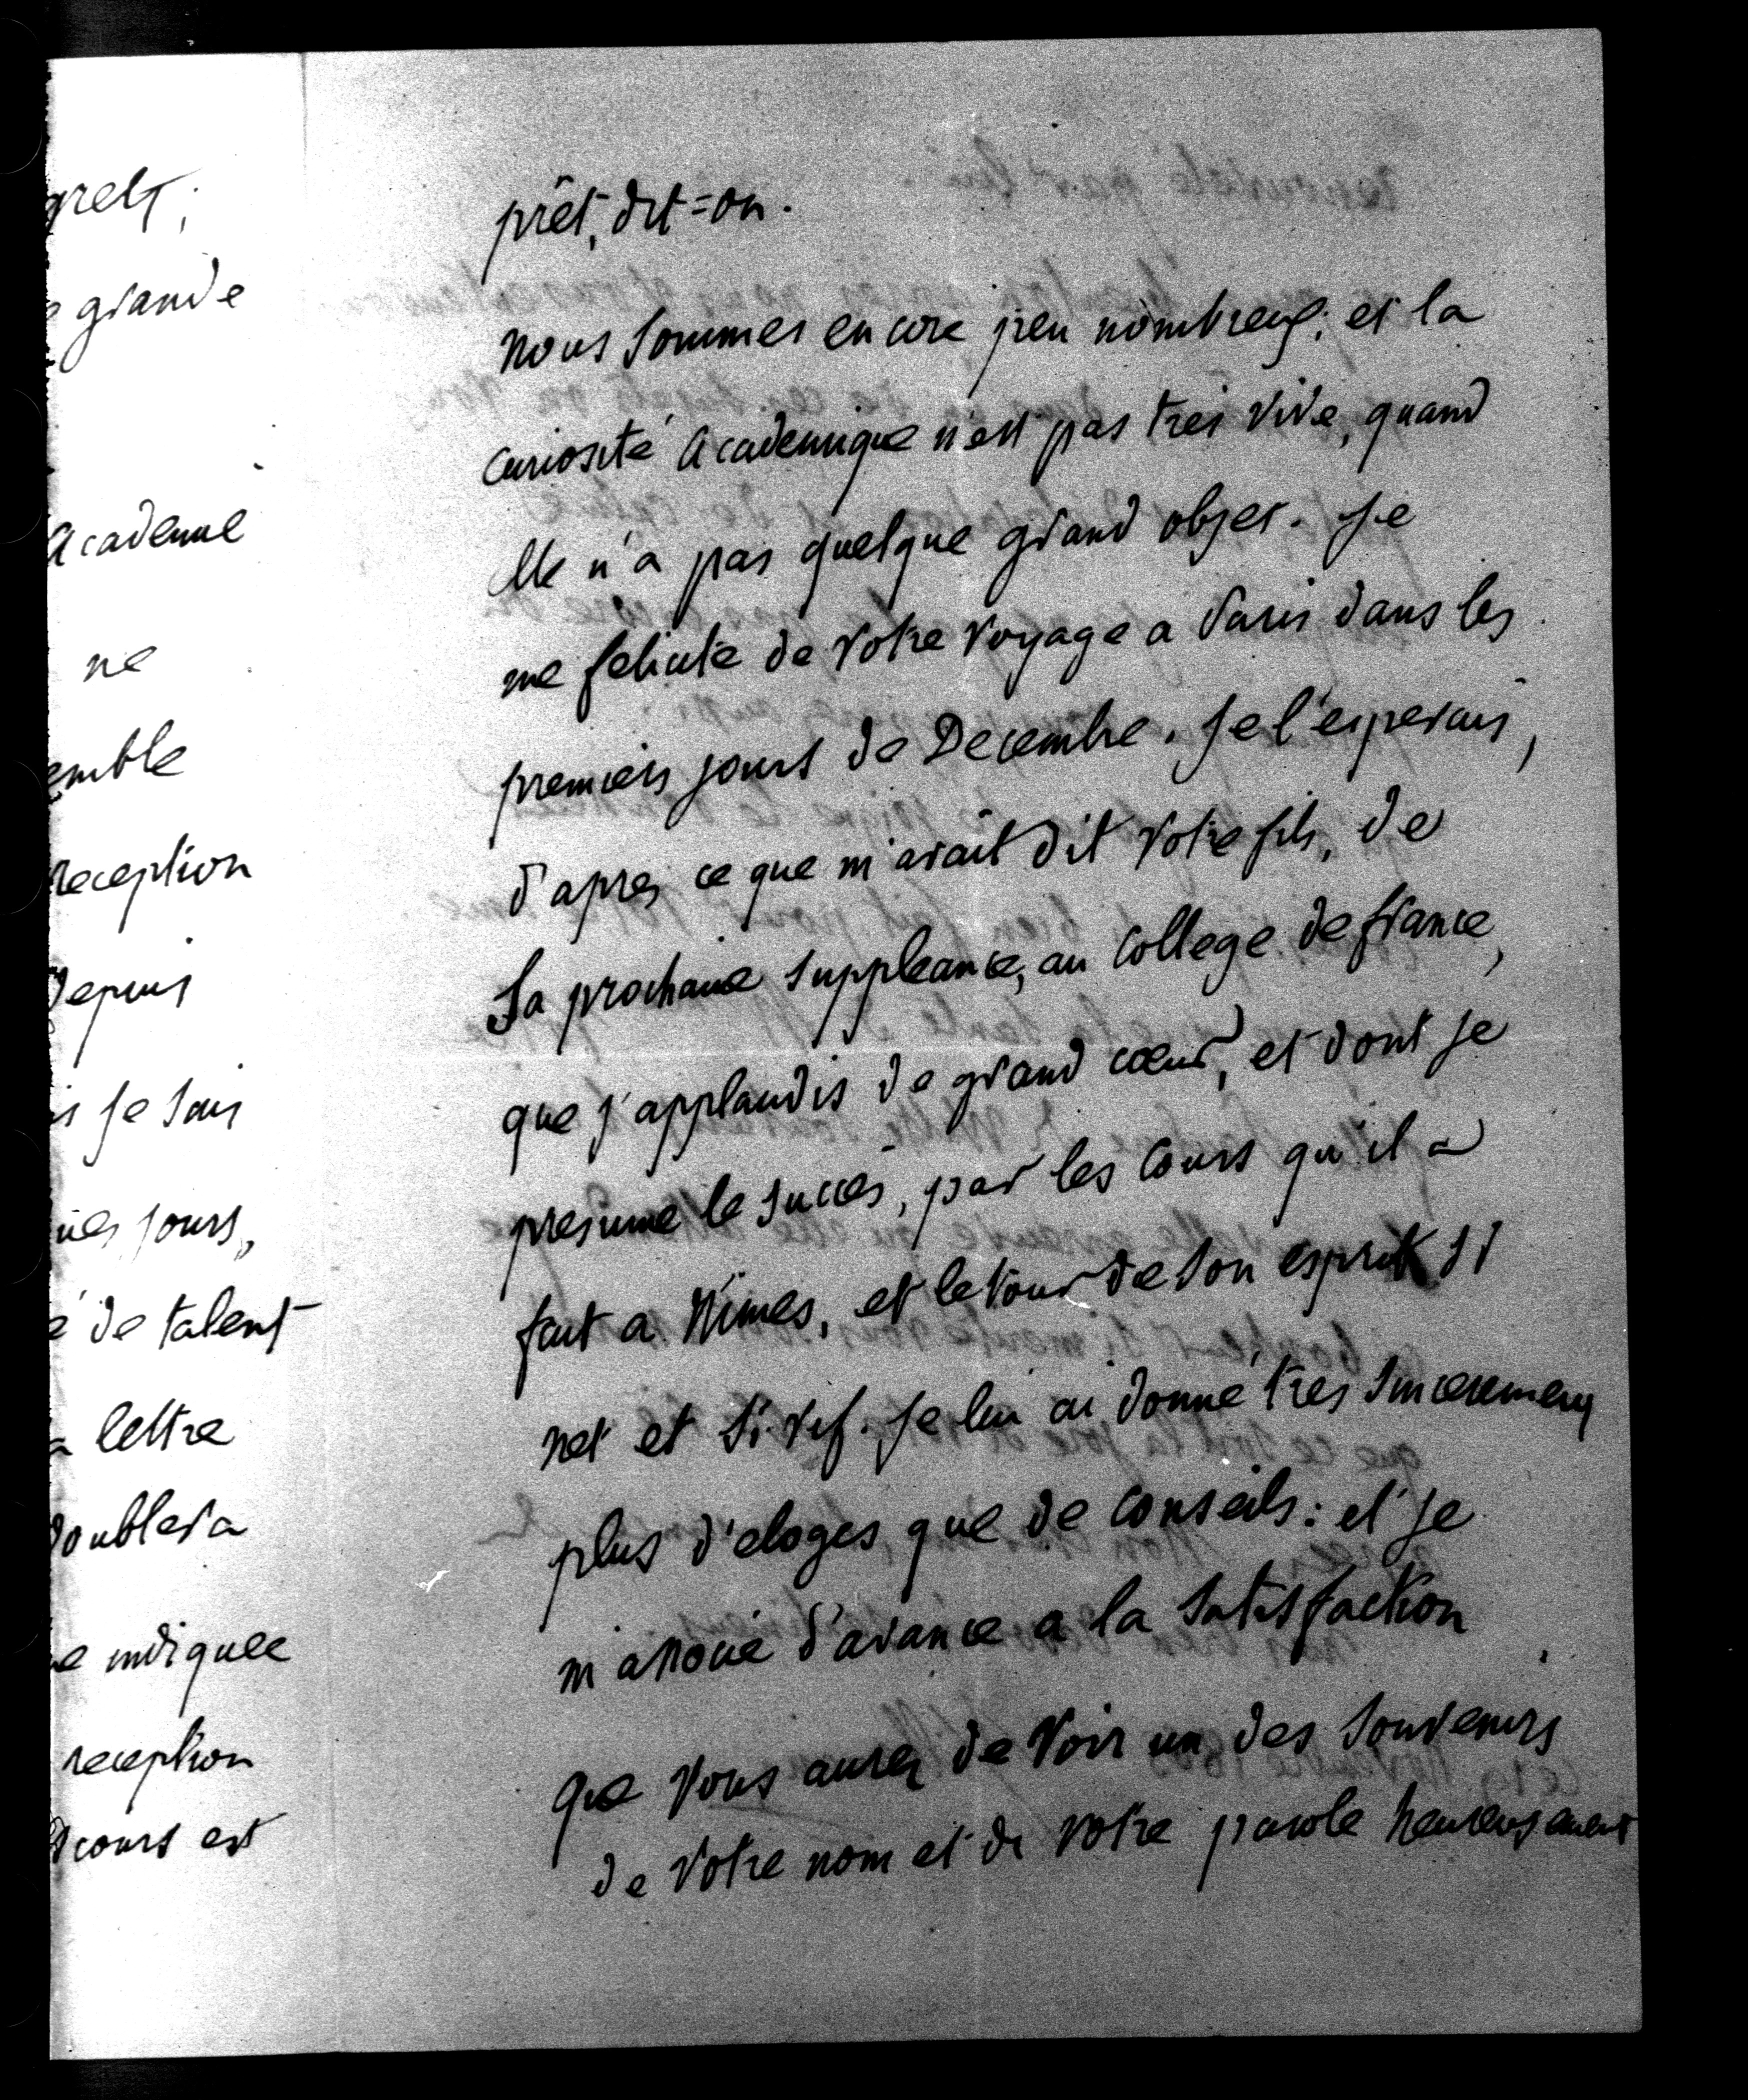 grets;
grande
Academie
ne
emble
reception
Depuis
is je sais
ues jours,
é de talent
a lettre
doublera
e indiquee
reception
scours est
prêt, dit=on.
nous sommes encore peu nombreux; et la
curiosité Academique n'est pas très vive, quand
elle n'a pas quelque grand objet. Je
me felicite de votre voyage a Paris dans les
premiers jours de Decembre. Je l'esperais,
d'apres ce que m'avait dit votre fils, de
Sa prochaine suppleance, au College de france,
que j'applaudis de grand cœur, et dont je
presume le succès, par les Cours qu'il a
fait a Nimes, et le tour de son esprit si
net et si vif. Je lui ai donné très sincerement
plus d'eloges que de conseils: et je
m'associe d'avance a la satisfaction
que vous aurez de voir un des souvenirs
de votre nom et de votre parole heureusement